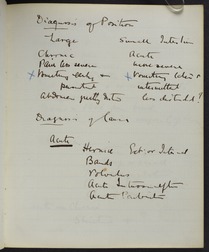 Diagnosis of Position
Large Small Intestine
Chronic Acute
Pain less severe more severe
x Vomiting early or x Vomiting
persistent intermittent
Abdomen greatly dist less distended?
Diagnosis of Cause
Acute
Hernial Ext or Internal
Bands
Volvulus
Acute Intussusception
Acute Peritonitis